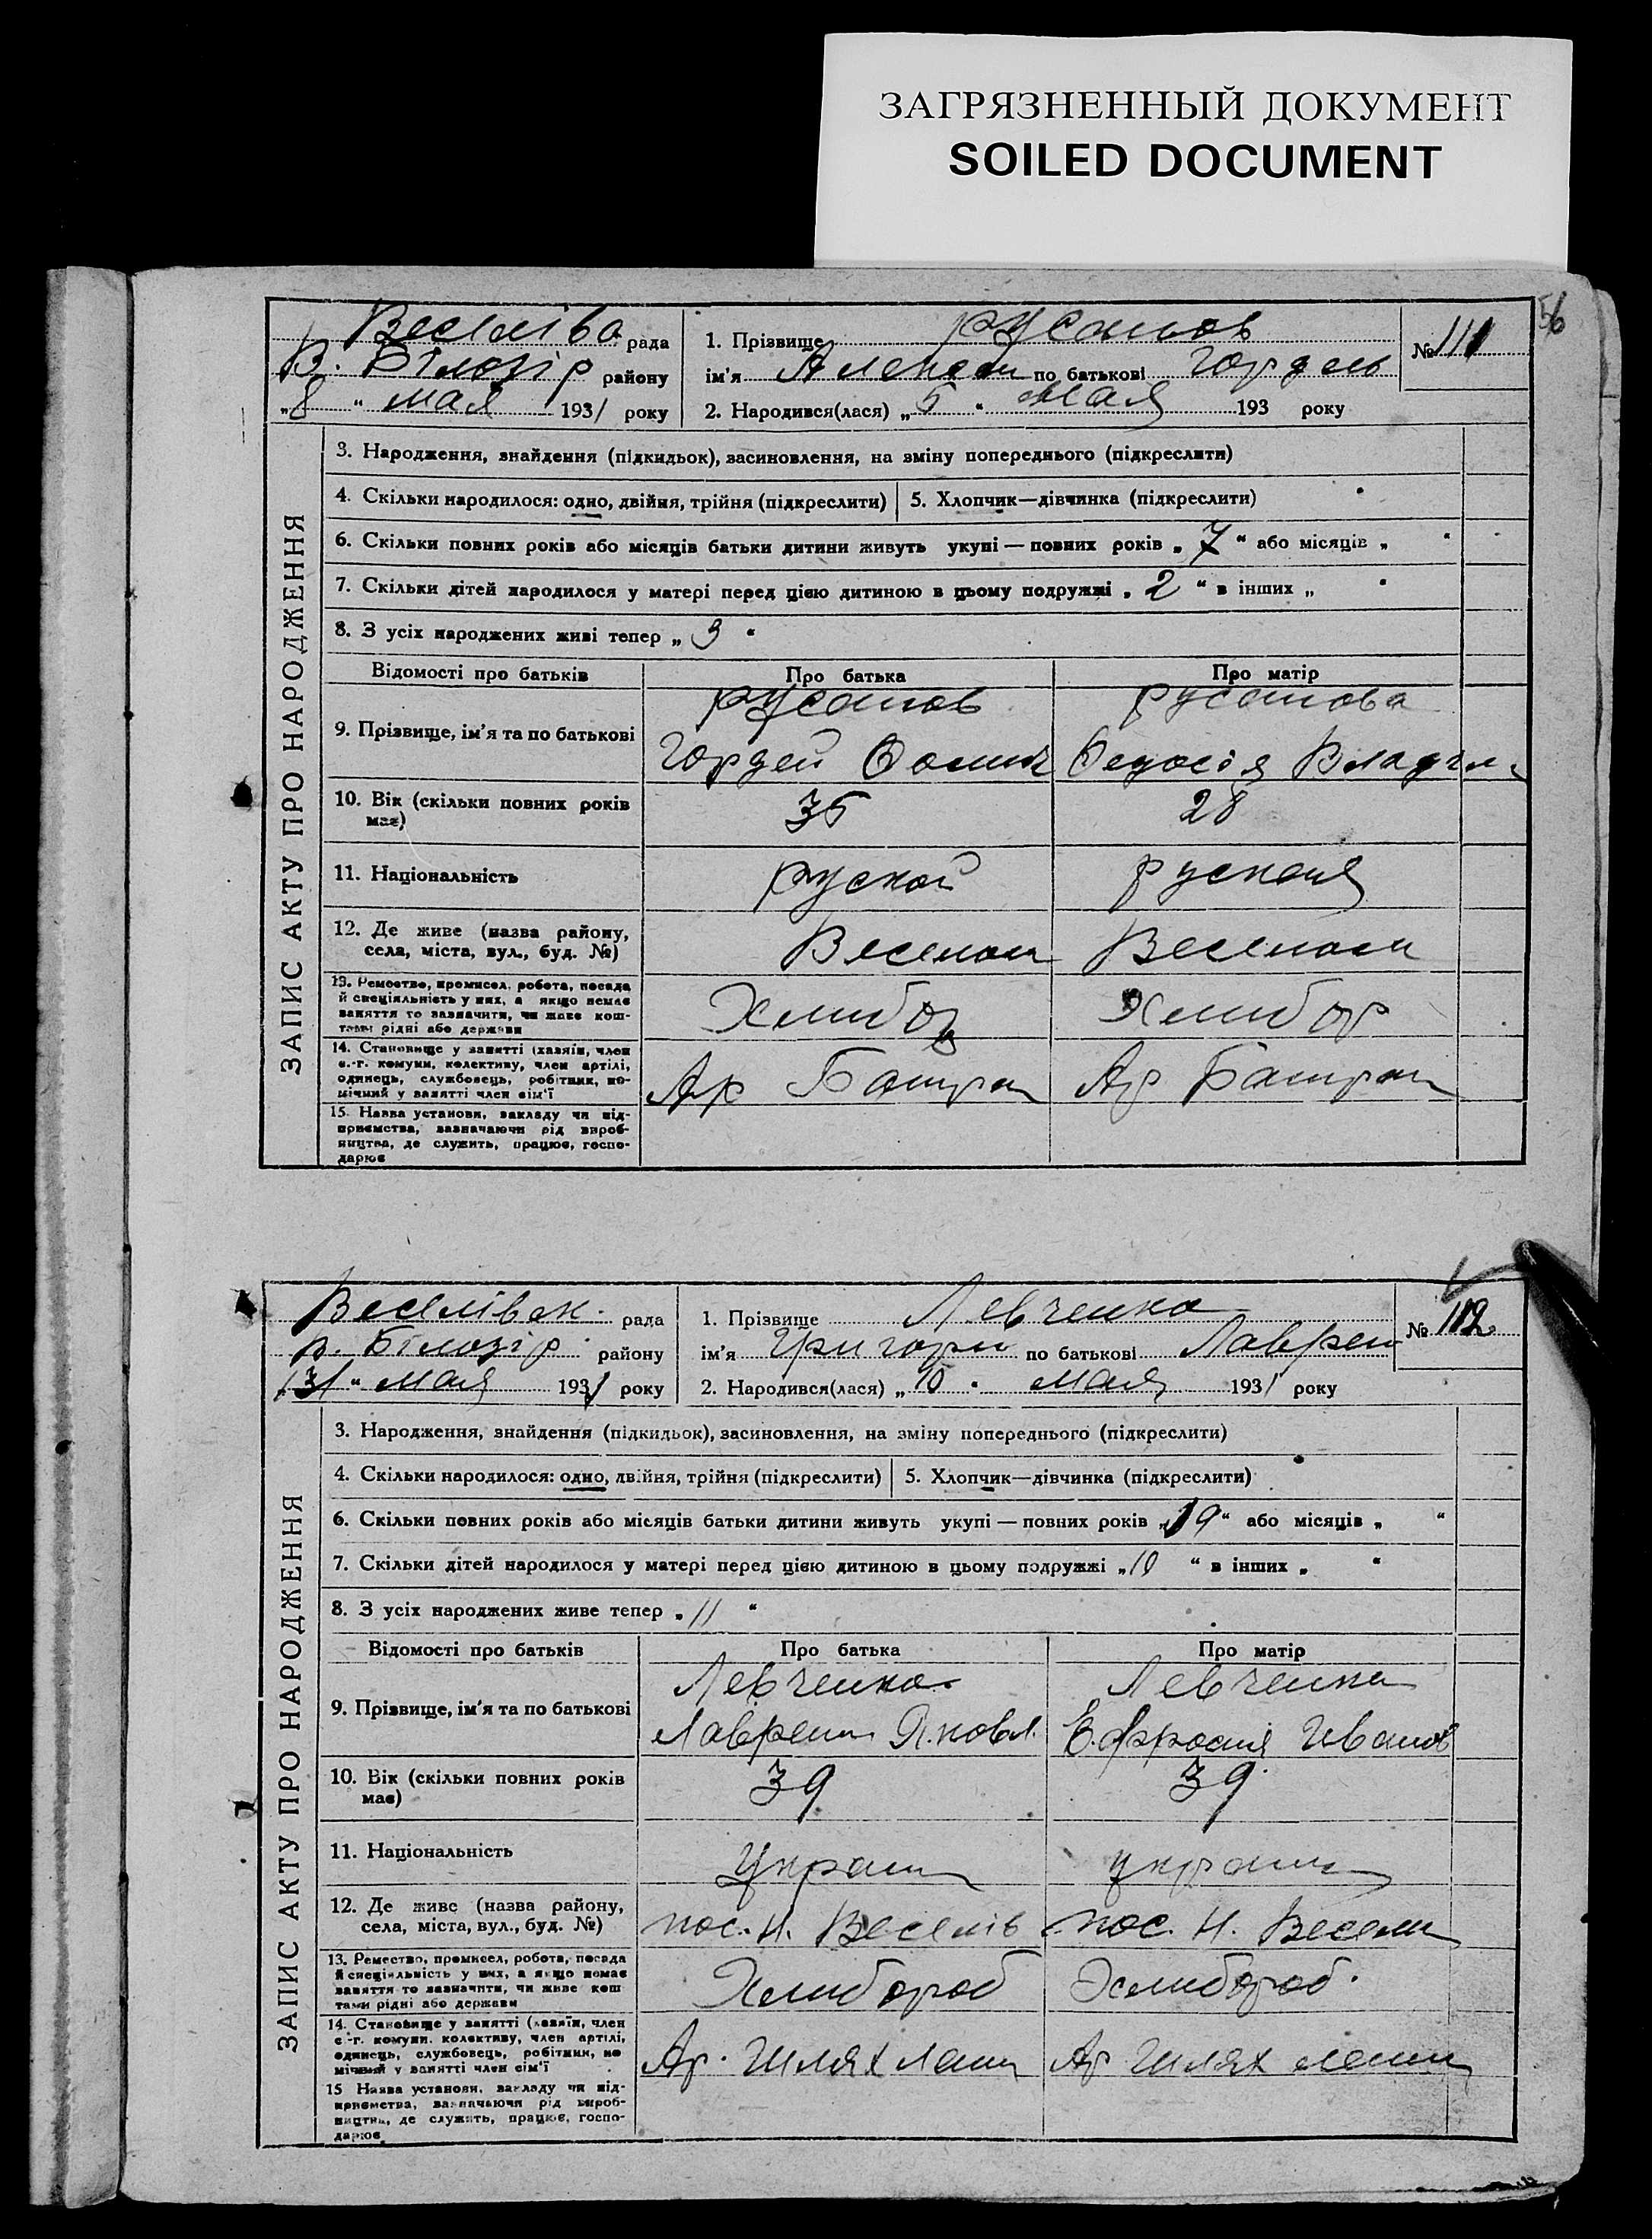 ЗАГРЯЗНЕННЫЙ ДОКУМЕНТ
SOILED DOCUMENT
56
рада
В. Білозір району
„8“ мая 1931 року
1. Прізвище Русанов
№ 111
ім'я по батькові
2. Народився(лася) „5“ мая 193 року
ЗАПИС АКТУ ПРО НАРОДЖЕННЯ
3. Народження, знайдення (підкидьок), засиновлення, на зміну попереднього (підкреслити)
4. Скільки народилося: одно, двійня, трійня (підкреслити) 5. Хлопчик—дівчинка (підкреслити)
6. Скільки повних років або місяців батьки дитини живуть укупі — повних років „7“ або місяців „ “
7. Скільки дітей народилося у матері перед цією дитиною в цьому подружжі „2“ в інших „ “
8. З усіх народжених живі тепер „3“
Відомості про батьків Про батька Про матір
9. Прізвище, ім'я та по батькові
Русанов Русанова
Гордей Федосія
10. Вік (скільки повних років має) 35 28
11. Національність руской руская
12. Де живе (назва району, села, міста, вул., буд. №)
13. Ремество, промисел, робота, посада й спеціяльність у них, а якщо немає заняття то зазначити, чи живе коштами рідні або держави Хлибор Хлибор
14. Становище у занятті (хазяїн, член с.-г. комуни, колективу, член артілі, одинець, службовець, робітник, помічний у занятті член сім'ї Ар Ар
15. Назва установи, закладу чи підприємства, зазначаючи рід виробництва, де служить, працює, господарює
Веселівск. рада
В. Білозір району
мая 1931 року
1. Прізвище Левченко
№ 112
ім'я Григори по батькові Лаврен
2. Народився(лася) „10“ мая 1931 року
ЗАПИС АКТУ ПРО НАРОДЖЕННЯ
3. Народження, знайдення (підкидьок), засиновлення, на зміну попереднього (підкреслити)
4. Скільки народилося: одно, двійня, трійня (підкреслити) 5. Хлопчик—дівчинка (підкреслити)
6. Скільки повних років або місяців батьки дитини живуть укупі — повних років „19“ або місяців „ “
7. Скільки дітей народилося у матері перед цією дитиною в цьому подружжі „10“ в інших „ “
8. З усіх народжених живе тепер „11“
Відомості про батьків Про батька Про матір
9. Прізвище, ім'я та по батькові
Левченко Левченко
Лаврен Яковл. Ефросия Иванов
10. Вік (скільки повних років має) 39 39
11. Національність Украин украин
12. Де живе (назва району, села, міста, вул., буд. №) пос. Н. Веселів пос. Н. Весели
13. Ремество, промисел, робота, посада й спеціяльність у них, а якщо немає заняття то зазначити, чи живе коштами рідні або держави Хлибороб Хлибороб
14. Становище у занятті (хазяїн, член с.-г. комуни, колективу, член артілі, одинець, службовець, робітник, помічний у занятті член сім'ї Ар. Шлях Лени Ар Шлях лени
15 Назва установи, закладу чи підприємства, зазначаючи рід виробництва, де служить, працює, господарює